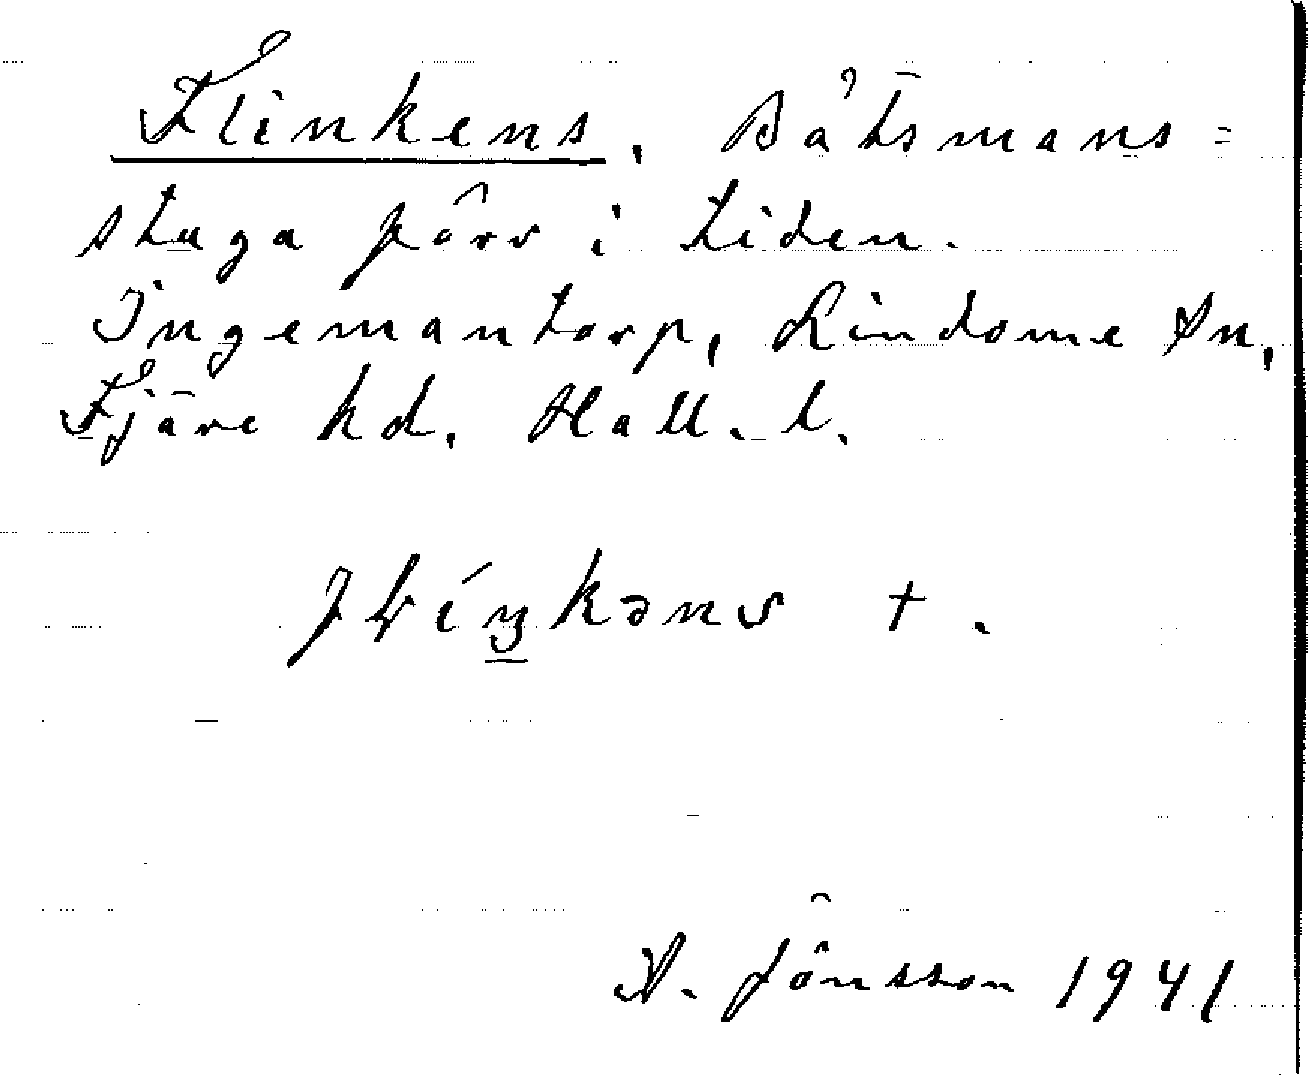 Flinkens, Båtsmans=
stuga förr i tiden.
Ingemantorp, Lindome sn,
Fjäre hd. Hall. l.
A. Jönsson 1941